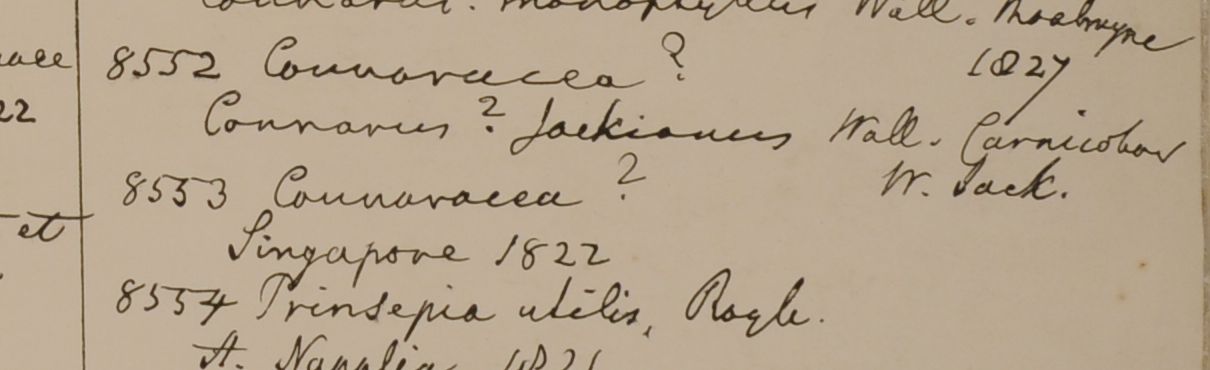 Connarus. monophyllus Wall. Moalmyne
1827
8552 Connaracea ?
Connarus ? Jackianus Wall. Carnicobar
W. Jack.
8553 Connaracea ?
Singapore 1822
8554 Prinsepia utilis, Royle.
22
et
A. Napalia 1821